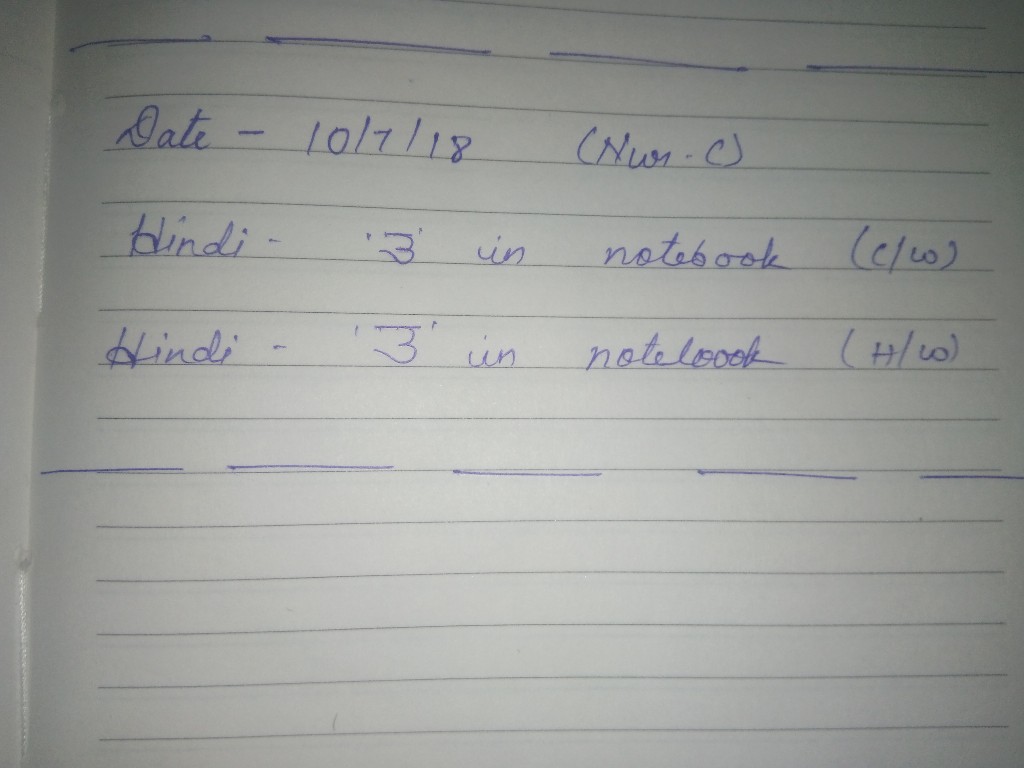 Date - 10/7/18 (Nur. C)
Hindi - 'उ' in notebook (C/W)
Hindi - 'उ' in notebook (H/W)